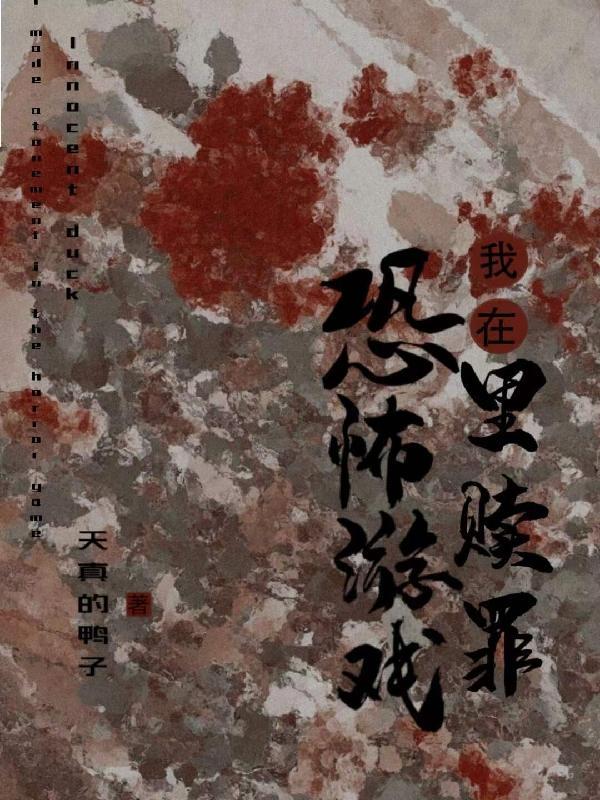 我在
恐怖游戏
里赎罪
天真的鸭子
著
Innocent duck
I made atonement in the horror game